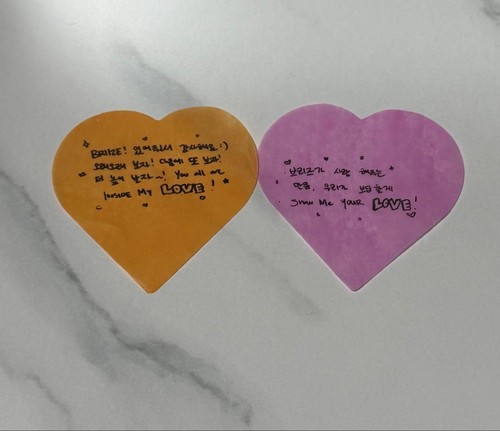 BRIIZE! 있어줘서 감사해요 :)
오래오래 보자! 다음에 또 보자!
더 놀자~! You all are
INSIDE My LOVE!
브리즈가 사랑 해주는
만큼, 우리가 보답할게
Show Me Your LOVE!